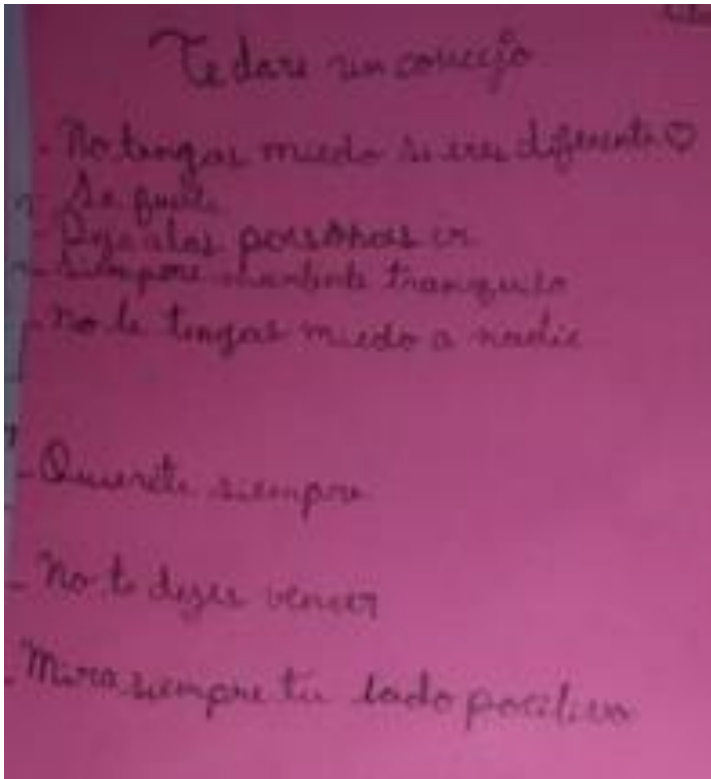 Te dare un consejo
- No tengas miedo si eres diferente ♡
- Se fuerte
- Deja alas personas ir
- Siempre mantente tranquilo
- no le tengas miedo a nadie
- Quierete siempre
- no te dejes vencer
- Mira siempre tu lado positivo